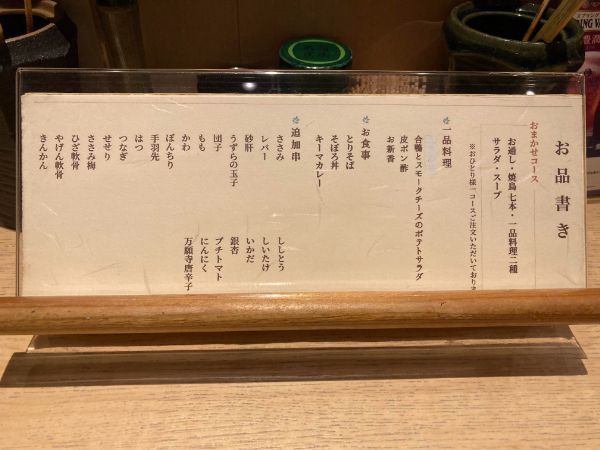 お品書き
おまかせコース
お通し・焼鳥七本・一品料理二種
サラダ・スープ
※おひとり様一コースご注文いただいており
一品料理
合鴨とスモークチーズのポテトサラダ
皮ポン酢
お新香
お食事
とりそば
そぼろ丼
キーマカレー
追加串
ささみ
レバー
砂肝
うずらの玉子
団子
もも
かわ
ぼんちり
手羽先
はつ
つなぎ
せせり
ささみ梅
ひざ軟骨
やげん軟骨
きんかん
ししとう
しいたけ
いかだ
銀杏
プチトマト
にんにく
万願寺唐辛子